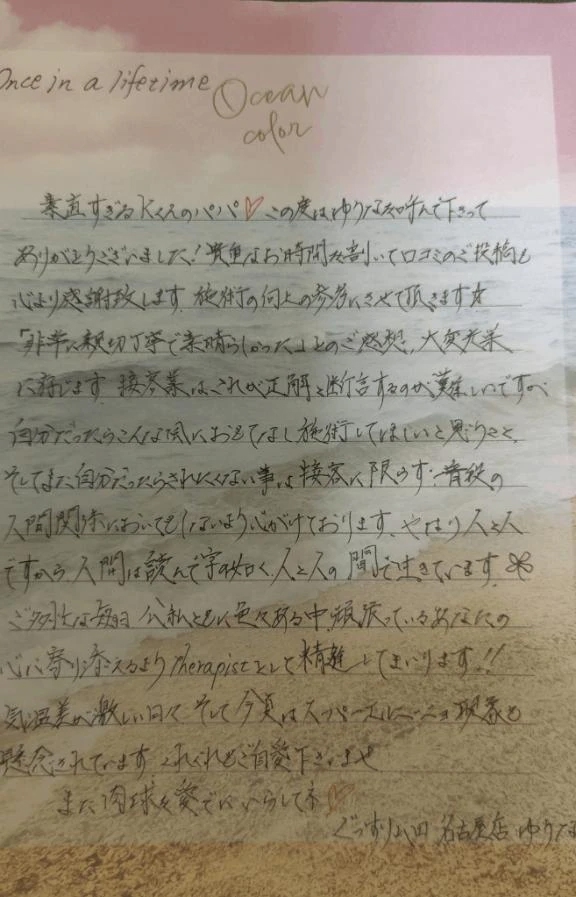 Once in a lifetime
Ocean
color
素直すぎるKくんのパパ♡この度はゆうなを呼んで下さって
ありがとうございました!貴重なお時間を割いて口コミのご投稿も
心より感謝致します。施術の向上の参考にさせて頂きます☆
「非常に親切丁寧で素晴らしかった」とのご感想、大変光栄
に存じます。接客業は、これが正解と断言するのが難しいですが
自分だったらこんな風におもてなし施術してほしいと思うこと、
そしてまた自分だったらされたくない事は接客に限らず、普段の
人間関係においてもしないよう心がけております。やはり人と人
ですから 人間は読んで字の如く、人と人の間で生きています。
ご多忙な毎日 公私ともに色々ある中、頑張っているあなたの
心に寄り添えるようtherapistとして精進してまいります!!
気温差が激しい日々 そして今夏はスーパーエルニーニョ現象も
懸念されています。くれぐれもご自愛下さいませ
また肉球を愛でにいらしてネ♡
ぐっすり 名古屋店 ゆうな